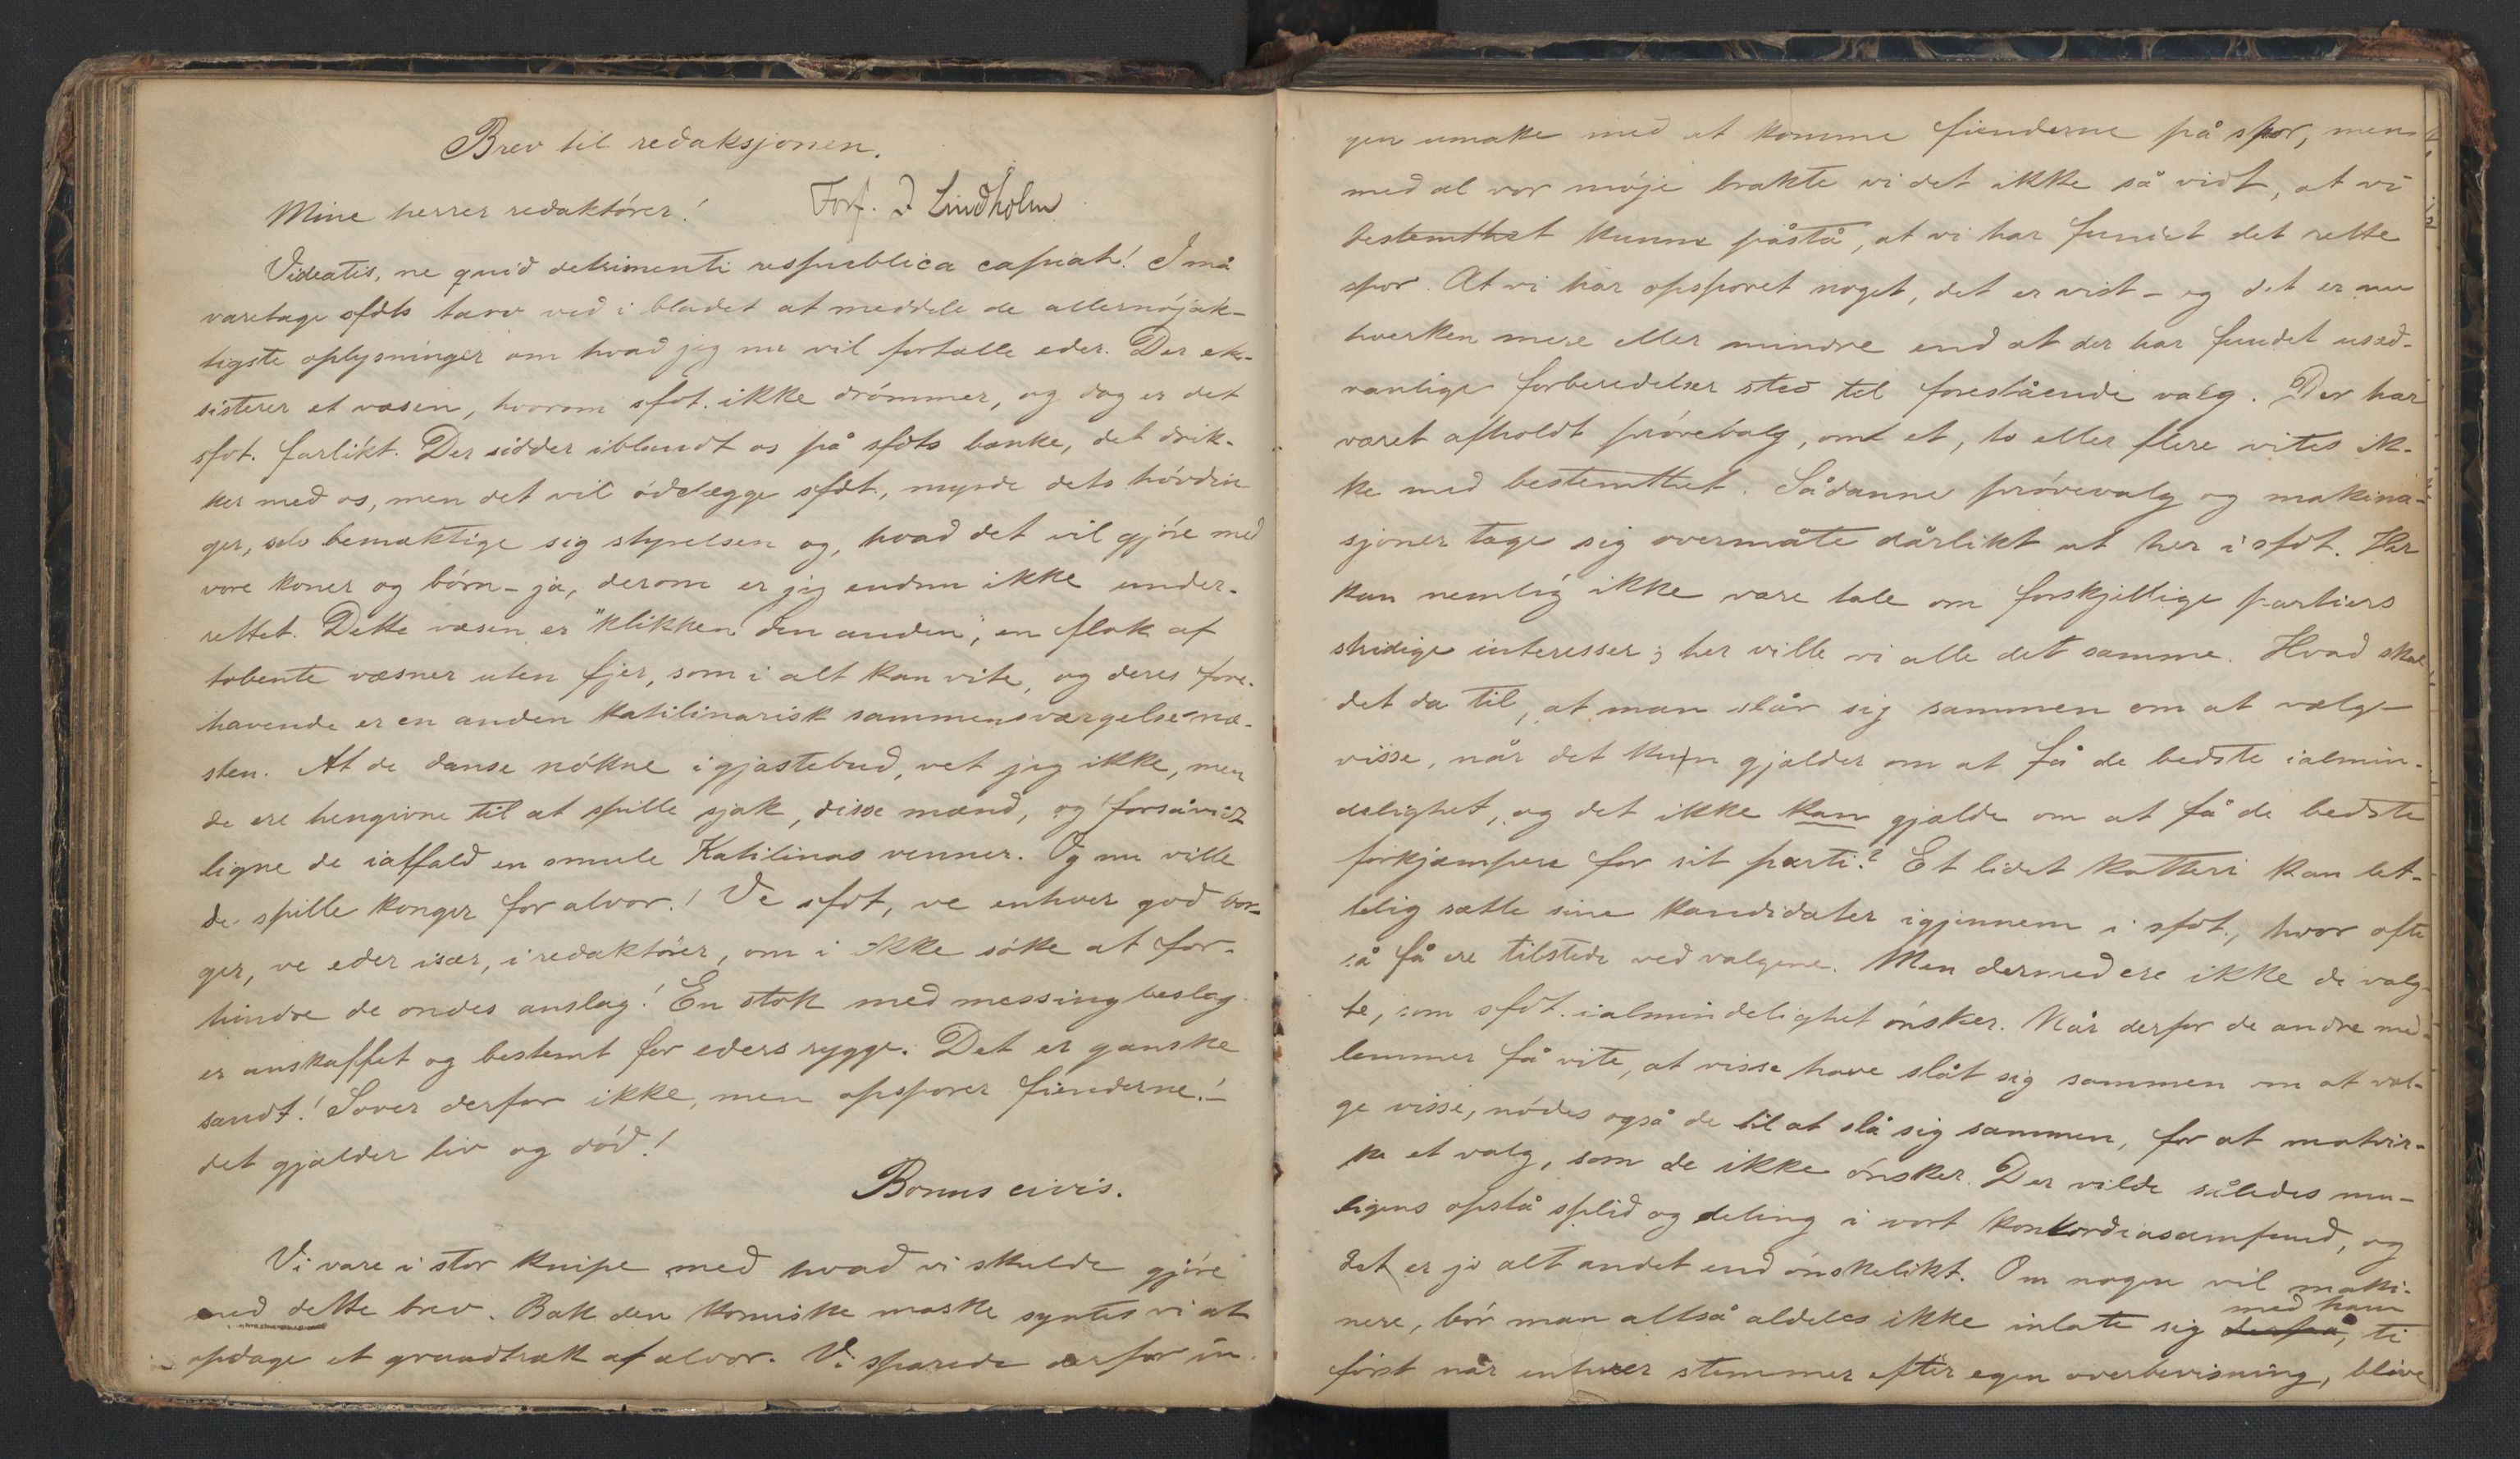 Brev til redaksjonen.
Mine herrer redaktörer! Forf. J Lindholm
Videatis, ne quid detrimenti respublica capiat! I må
varetage sfdts tarv ved i bladet at meddele de allernöjak-
tigste oplysninger om hvad jeg nu vil fortælle eder. Der ek-
sisterer et væsen, hvorom sfdt. ikke drömmer, og dog er det
sfdt. farlikt. Der sidder iblandt os på sfdts bænke, det drik-
ker med os, men det vil ödelægge sfdt., myrde dets hövdin
ger, selv bemæktige sig styrelsen og, hvad det vil gjöre med
vore koner og börn - ja, derom er jeg endnu ikke under-
rettet. Dette væsen er "klikken den anden", en flok af
tobente væsner uten fjer, som i alt kan vite, og deres fore-
havende er en anden katilinarisk sammensværgelse næ-
sten. At de danse nökne i gjæstebud, vet jeg ikke, men
de ere hengivne til at spille sjak, disse mænd, og forsåvidt
ligne de iaffald en smule Katilinas venner. Og nu ville
de spille konger for alvor! Ve sfdt, ve enhver god bor-
ger, ve eder især, i redaktörer, om i ikke söke at for-
hindre de ondes anslag! En stok med messingbeslag
er anskaffet og bestemt for eders rygge. Det er ganske
sandt! Sover derfor ikke, men opsporer fienderne! -
det gjælder liv og död!
Bonus civis.
Vi vare i stor knipe med hvad vi skulde gjöre
med dette brev. Bak den komiske maske syntes vi at
opdage et grundtræk af alvor. Vi sparede derfor in-
gen umake med at komme fienderne på spor, men
med al vor möje brakte vi det ikke så vidt, at vi
bestemthet kunne påstå, at vi har fundet det rette
spor. At vi har opsporet noget, det er vist - og det er nu
hverken mere eller mindre end at der har fundet usæd-
vanlige forberedelser sted til forestående valg. Der har
været afholdt prövevalg, om et, to eller flere vites ik-
ke med bestemthet. Sådanne prövevalg og makina-
sjoner tage sig overmåte dårlikt ut her i sfdt. Her
kan nemlig ikke være tale om forskjellige partiers
stridige interesser; her ville vi alle det samme. Hvad skal
det da til, at man slår sig sammen om at vælge
visse, når det kun gjælder om at få de bedste i almin-
delighet, og det ikke kan gjælde om at få de bedste
forkjæmpere for sit parti? Et lidet kotteri kan let-
telig sætte sine kandidater igjennem i sfdt., hvor ofte
så få ere tilstede ved valgene. Men dermed ere ikke de valg-
te, som sfdt. i almindelighet önsker. Når derfor de andre med-
lemmer få vite, at visse have slåt sig sammen om at væl-
ge visse, nödes også de til at slå sig sammen, for at motvir-
ke et valg, som de ikke önsker. Der vilde således mu-
ligens opstå splid og deling i vort konkordiasamfund, og
det er jo alt andet end önskelikt. Om nogen vil maki-
nere, bör man altså aldeles ikke inlate sig derpå, med ham ti
först når enhver stemmer efter egen overbevisning, blive